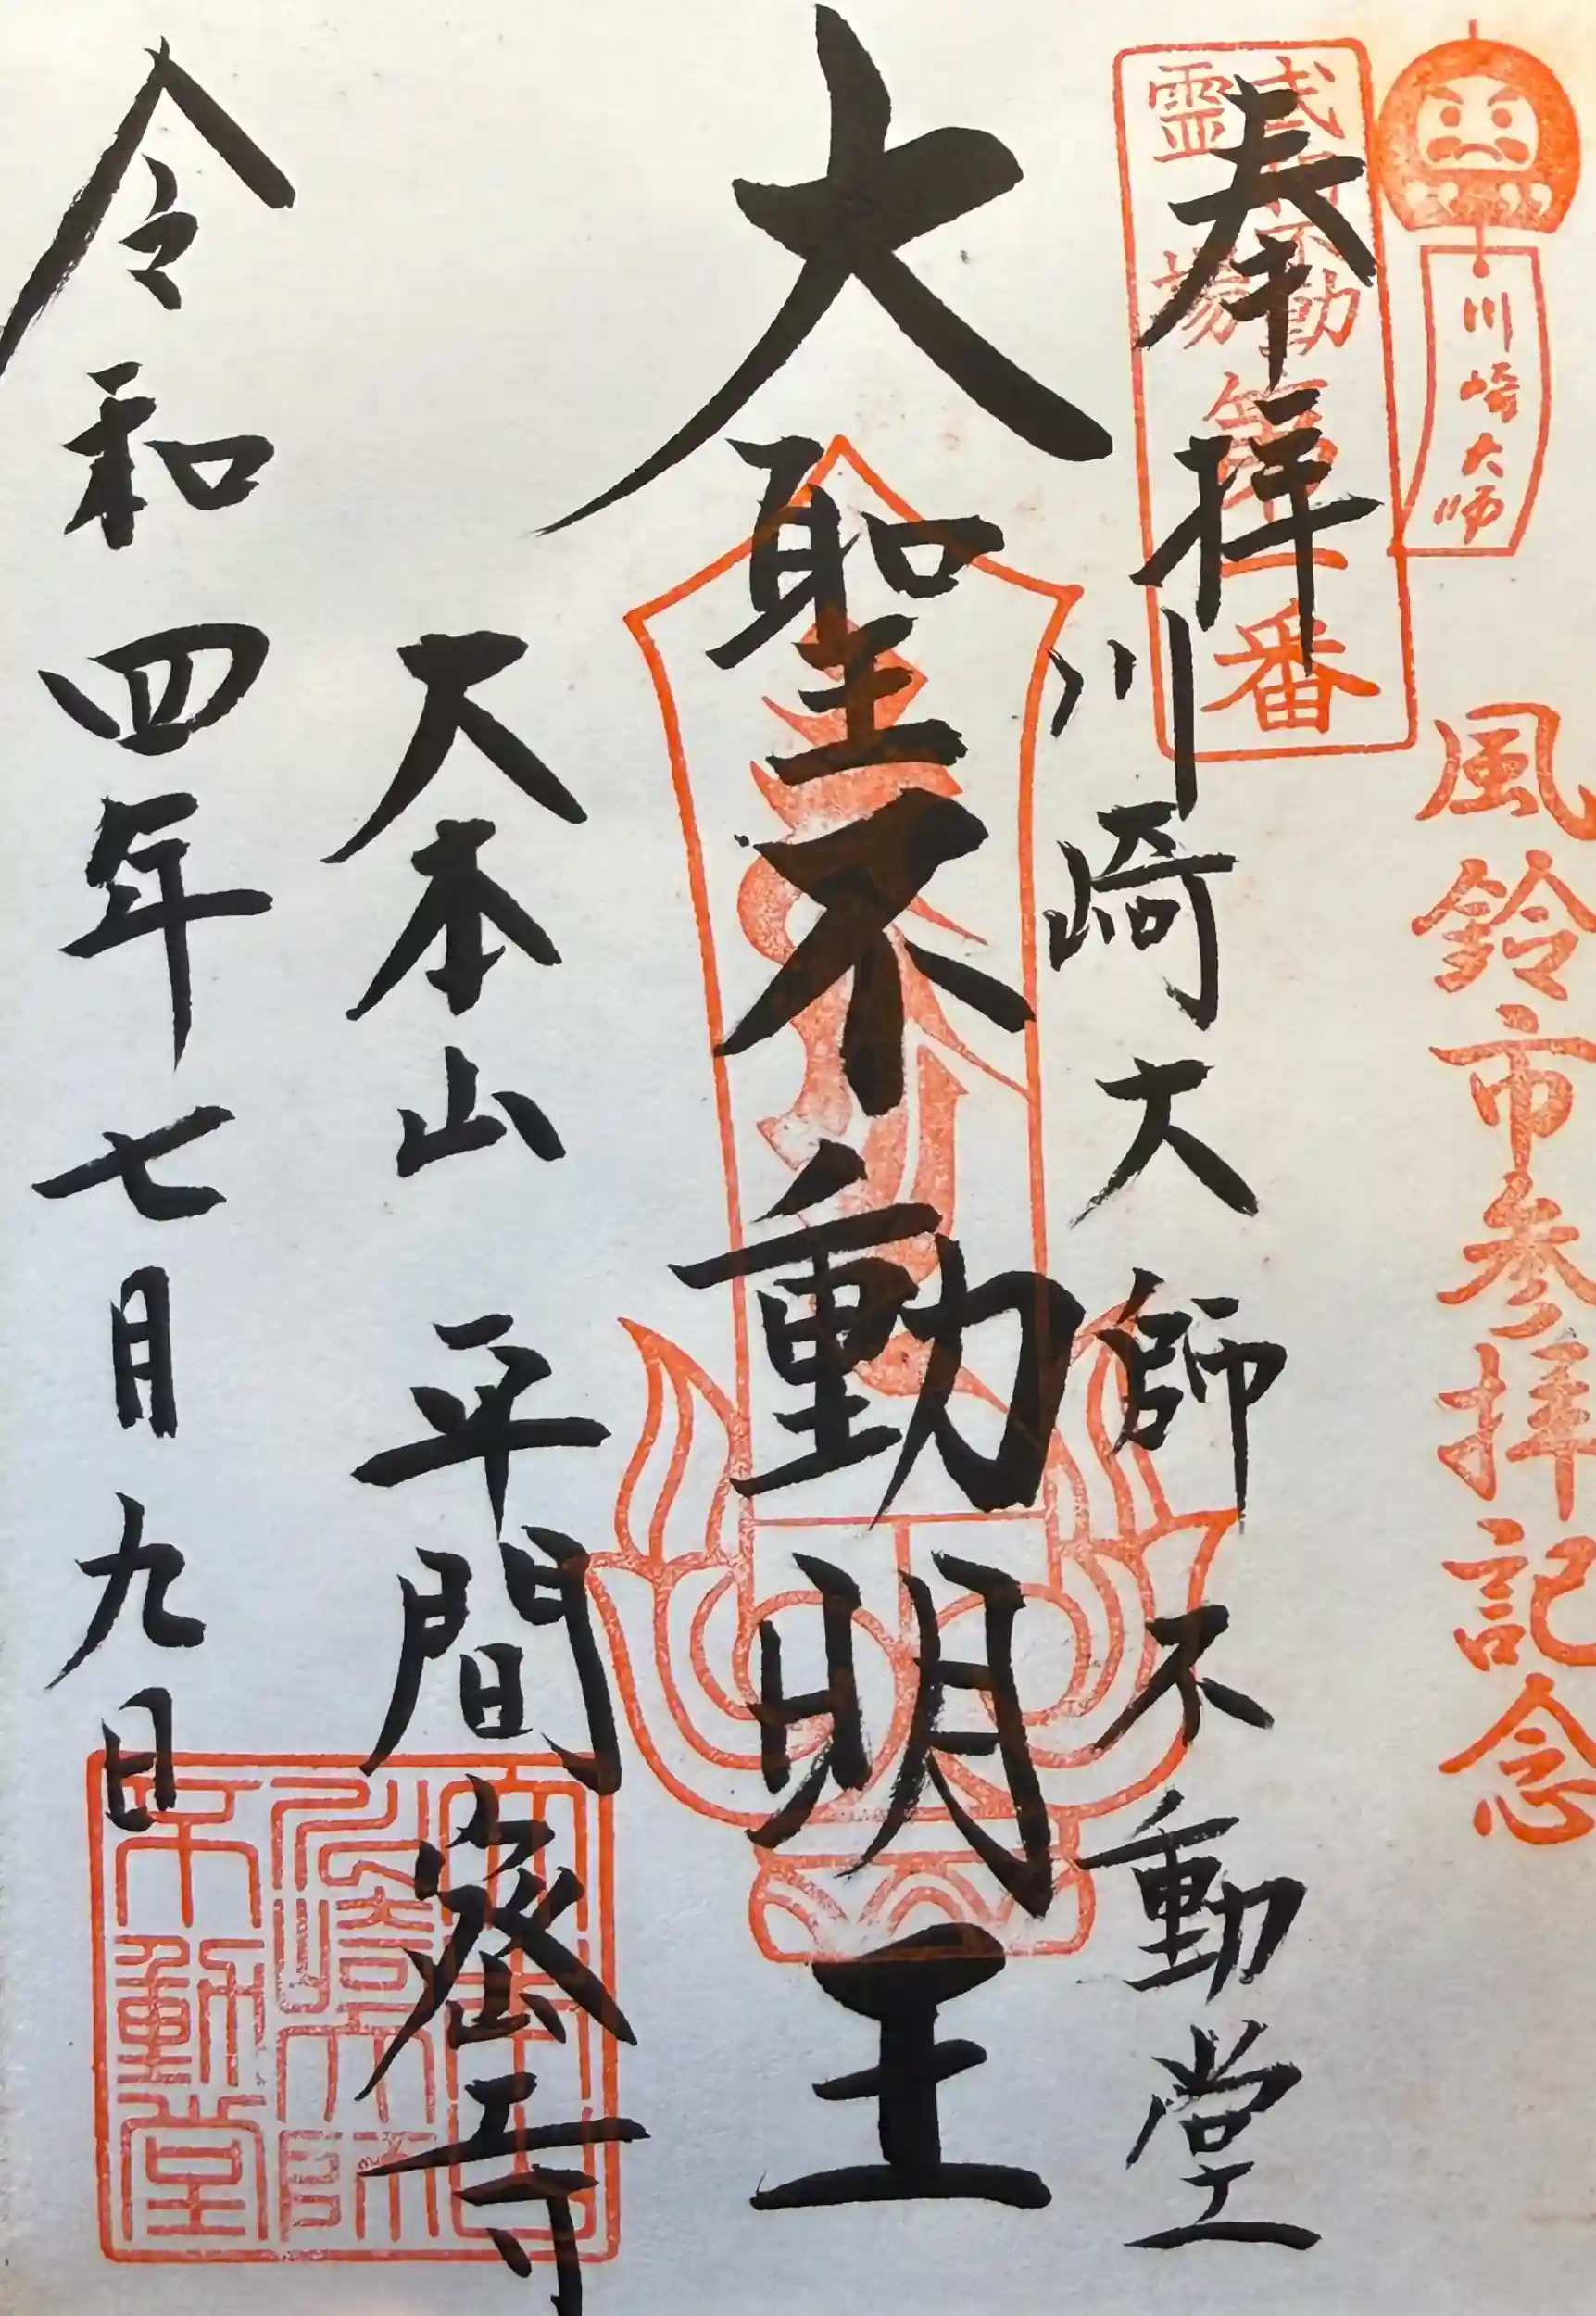 川崎大師
風鈴市参拝記念
武相不動
霊場
第一番
奉拝
川崎大師不動堂
大聖不動明王
大本山 平間寺
大本山
川崎大師
不動堂
令和四年七月九日